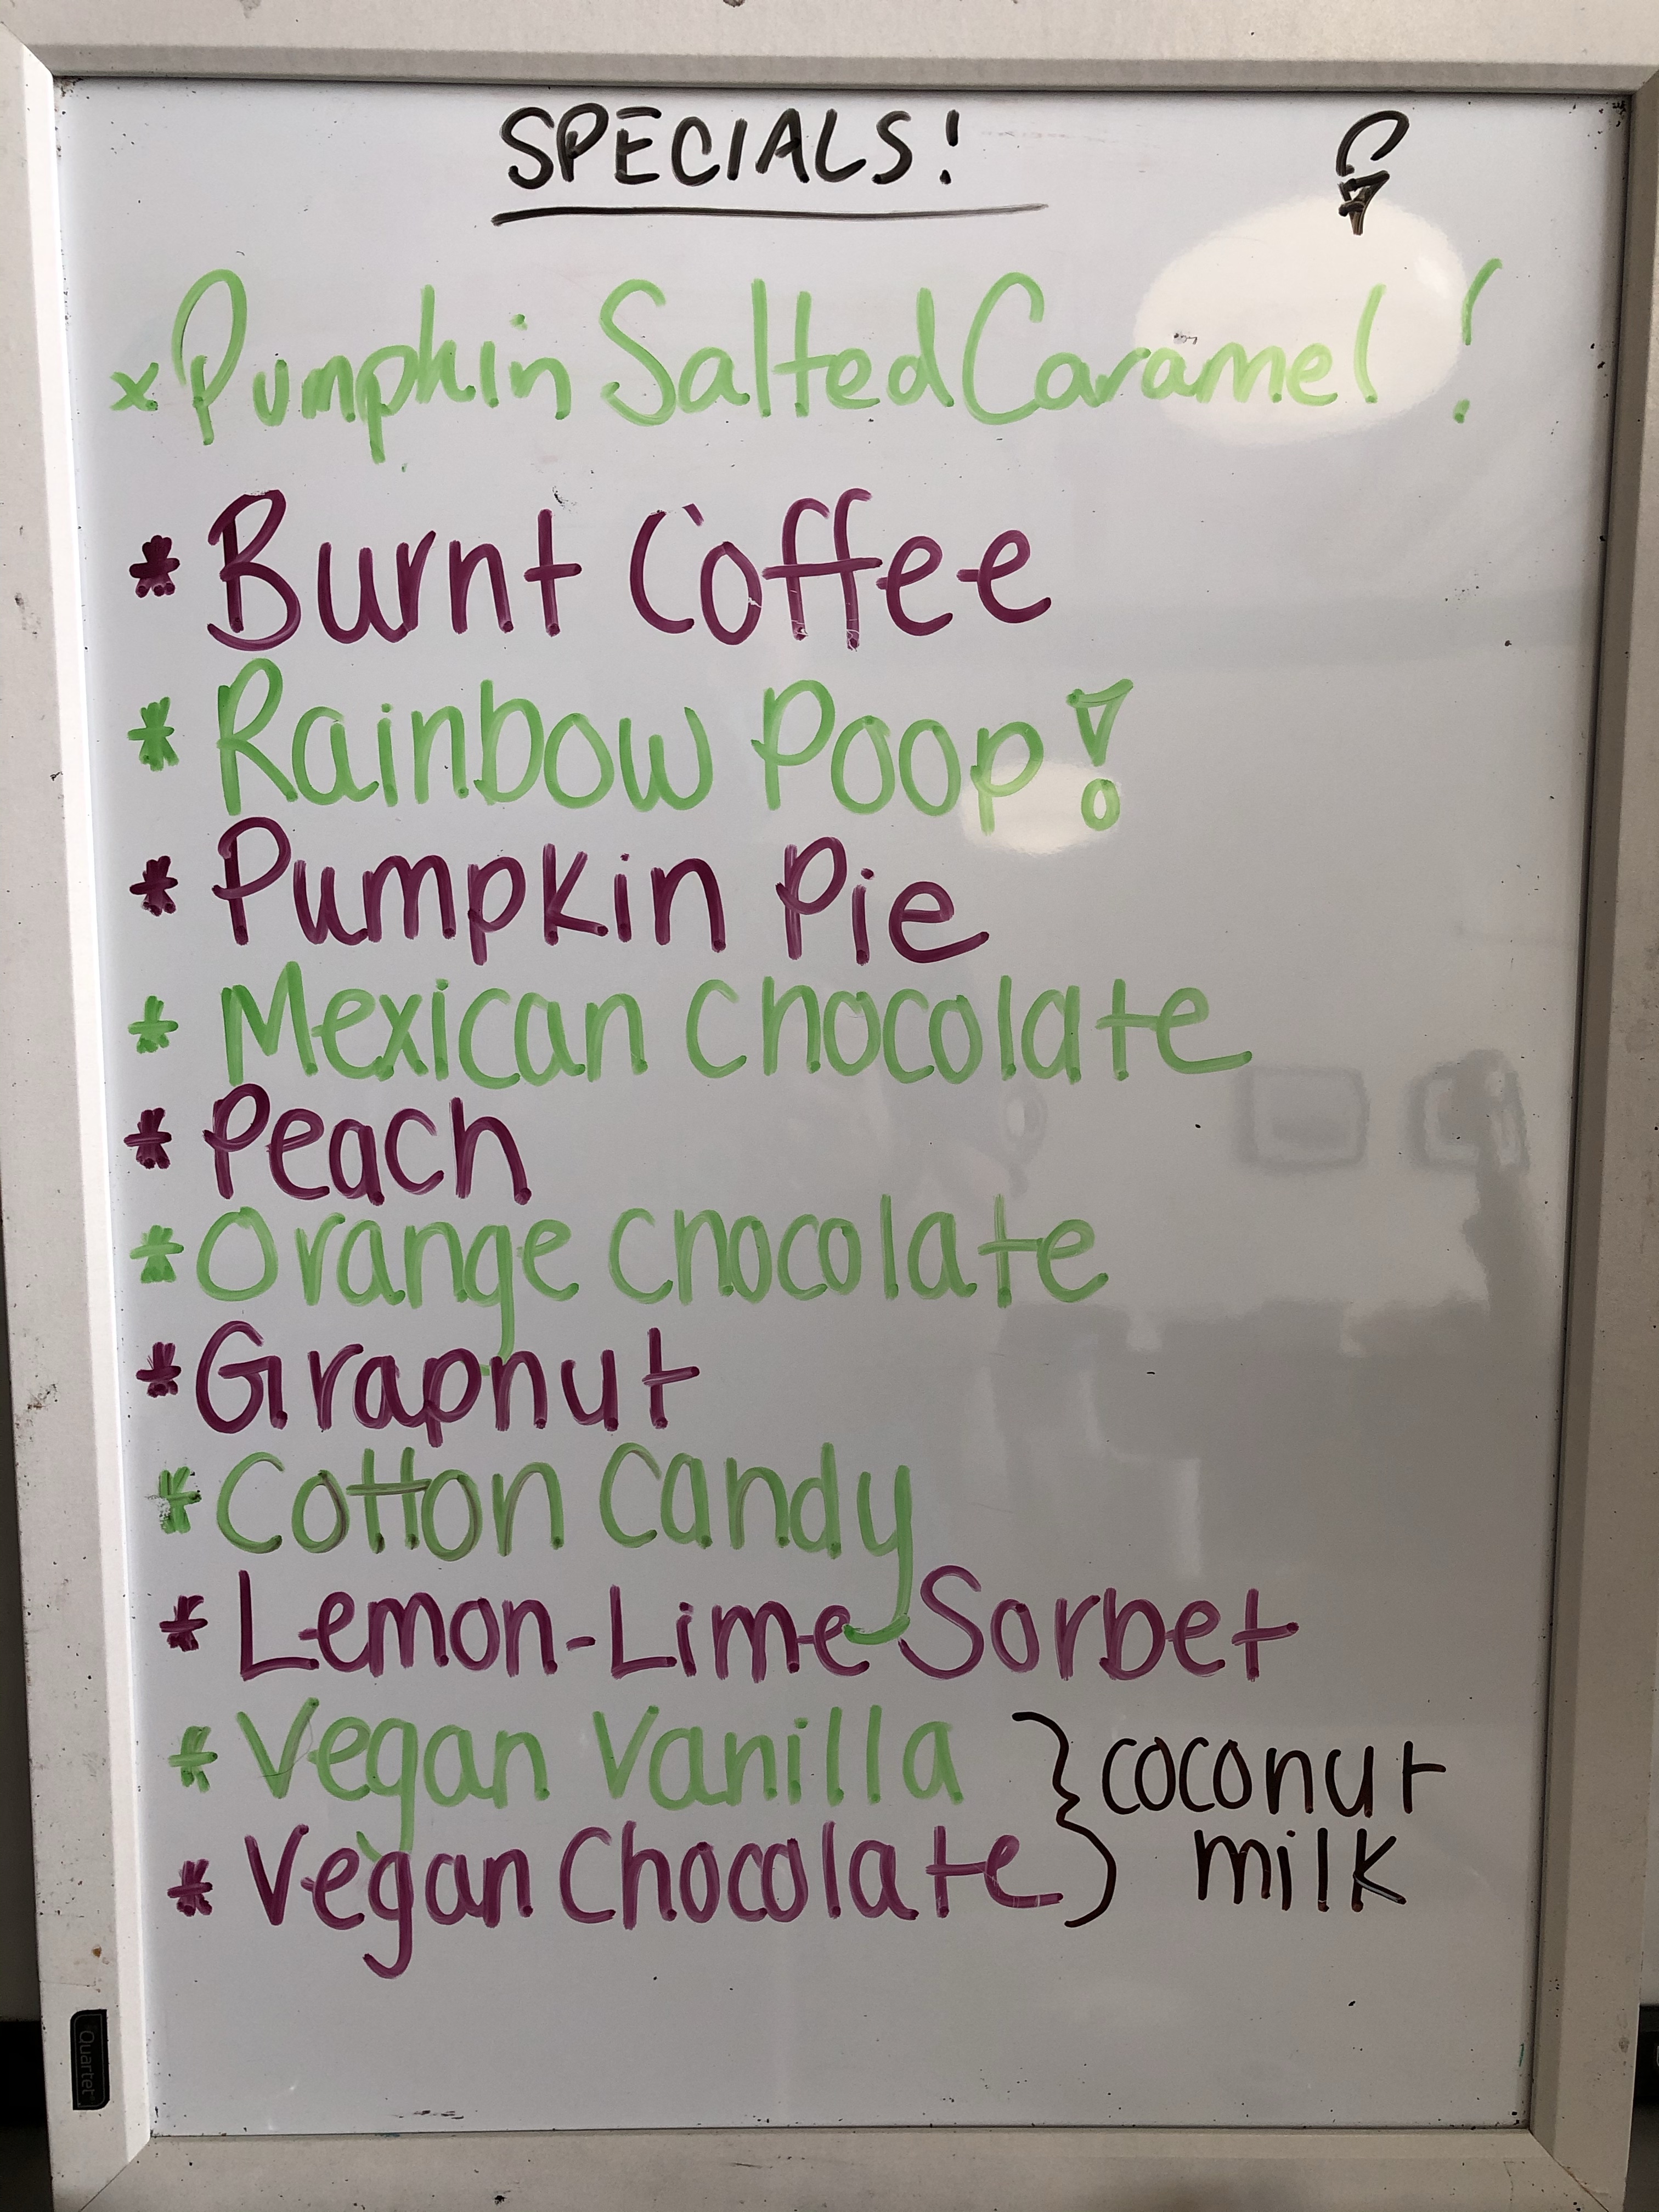 SPECIALS!
x Pumpkin Salted Caramel!
* Burnt Coffee
* Rainbow Poop!
* Pumpkin Pie
* Mexican Chocolate
* Peach
* Orange Chocolate
* Grapnut
* Cotton Candy
* Lemon-Lime Sorbet
* Vegan Vanilla
* Vegan Chocolate
} coconut
milk
Quartet